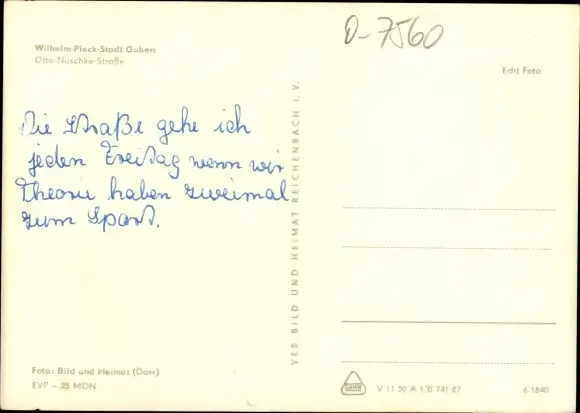 Wilhelm-Pieck-Stadt Guben
Otto-Nuschke-Straße
D-7560
Echt Foto
Die Straße gehe ich
jeden Freitag wenn wir
Theorie haben zweimal
zum Sport.
VEB BILD UND HEIMAT REICHENBACH I. V.
Foto: Bild und Heimat (Darr)
EVP -,25 MDN
V 11 50 A 1/B 741/67
6/1840